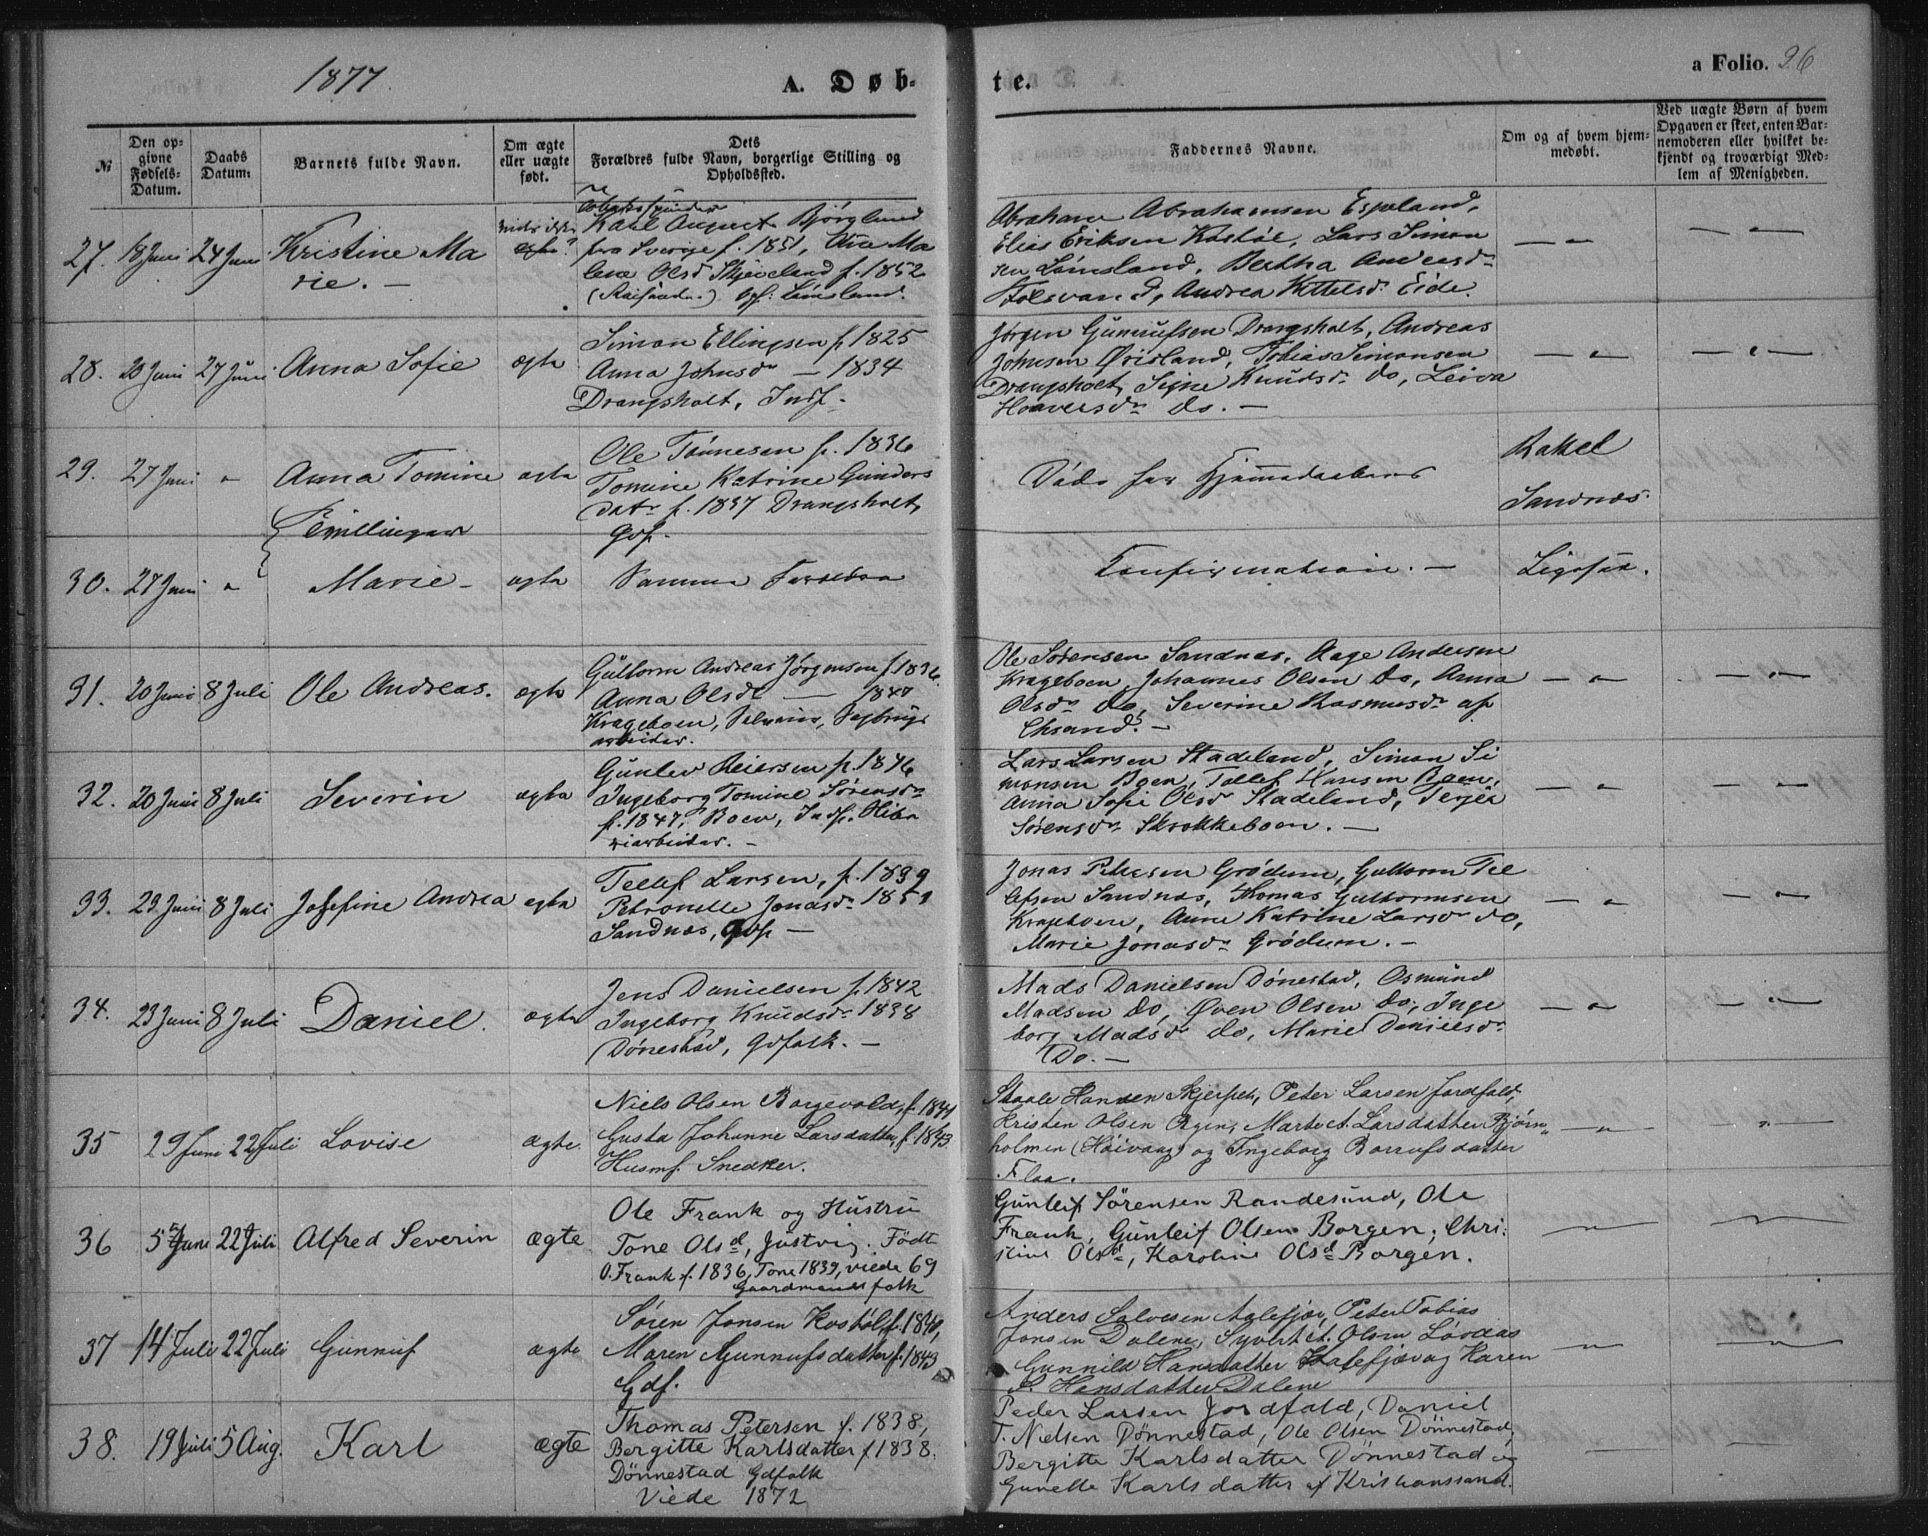 1877.
A. Døb-
te.
a Folio. 26
№
Den op-
givne
Fødsels-
Datum.
Daabs
Datum:
Barnets fulde Navn.
Om ægte
eller uægte
født.
Dets
Forældres fulde Navn, borgerlige Stilling og
Opholdssted.
Faddernes Navne.
Om og af hvem hjem-
medøbt.
Ved uægte Børn af hvem
Opgaven er skeet, enten Bar-
nemoderen eller hvilket be-
kjendt og troværdigt Med-
lem af Menigheden.
27. 18 Juni 24 Juni Kristine Ma
rie. —
ægte?
Karl August Bjørglund
fra Sverige f. 1851, Ma
lene Olsd. Skjeveland f. 1852
Abraham Abrahamsen Espeland,
Elias Eriksen Kostöl, Lars Simon
sen Lömsland, Bertha Andersdr
Andrea Kittelsd. Eide.
28. 20 Juni 24 Juni Anna Sofie ægte
Simon Ellingsen f. 1825
Anna Johnsdr — 1834
Drangsholt, Inds. —
Jørgen Gunnufsen Drangsholt, Andreas
Johnsen Øvisland, Tobias Simonsen
Drangsholt, Signe Knudsdr do,
Haaversdr do. —
29. 27 Juni " Anna Tomine ægte
Ole Tönnesen f. 1836
Tomine Katrine Gunders
datr f. 1837 Drangsholt,
Gdf.
Døde før Hjemmedaabens
Rakel
Sandnæs.
Tvillinger
30. 27 Juni " Marie — ægte Samme Forældre
Konfirmation. —
Ligesaa.
31. 20 Juni 8 Juli Ole Andreas. ægte
Guttorm Andreas Jørgensen f. 1836
Anna Olsdr — 1847
Krageboen,
arbeider.
Ole Sørensen Sandnæs, Aage Andersen
Krageboen, Johannes Olsen do, Anna
Olsdr do, Severine Rasmusdr af
Chrsand. —
32. 20 Juni 8 Juli Severin ægte
Gunlev Reiersen f. 1846
Ingeborg Tomine Sörensdr
f. 1847, Boen, Inds.
riarbeider. —
Lars Larsen Stadeland, Simon Si
monsen Boen, Tellef Hansen Boen,
Anna Sofi Olsdr Stadeland, Terjea
Sörensdr Skrokkeboen. —
33. 23 Juni 8 Juli Josefine Andrea ægte
Tellef Larsen, f. 1839
Petronelle Jonasdr 1851
Sandnæs, Gdf. —
Jonas Petersen Grödum, Guttorm Tel
lefsen Sandnæs, Thomas Guttormsen
Krageboen, Anne Katrine Larsdr do,
Marie Jonasdr Grödum. —
34. 23 Juni 8 Juli Daniel. ægte
Jens Danielsen f. 1842
Ingeborg Knudsdr 1838
Dönestad, Gdfolk. —
Mads Danielsen Dönestad, Osmund
Madsen do, Øven Olsen do, Inge
borg Madsdr do, Marie Danielsdr
Do. —
35 29 Juni 22 Juli Lovise ægte.
Niels Olsen Borgevold, f. 1841
Gusta Johanne Larsdatter, f. 1843
Husmf. Snedker.
Staale Hansen Skjerpe, Peter Larsen Jordfald,
Kristen Olsen Bgen, Marte A. Larsdatter Bjørn-
holmen (Höivaag) og Ingeborg Borrufsdatter
Flaa.
36 5 Juni 22 Juli Alfred Severin ægte
Ole Frank og Hustru
Tone Olsd, Justvig. Födt
O. Frank f. 1836, Tone 1839, viede 69
Gaardmandsfolk
Gunleif Sörensen Randesund, Ole
Frank, Gunleif Olsen Borgen, Chri-
stine Olsd, Karoline Olsd Borgen.
37 14 Juli 22 Juli Gunnuf ægte
Sören Jansen Kostöl f. 1840,
Maren Gunnufsdatter f. 1843
Gdf.
Anders Salvesen Aalefjær, Peter Tobias
Jansen Dalene, Syvert A. Olsen Lövdas
Gunnild Hansdatter Aalefjær og Karen
S. Hansdatter Dalene
38. 19 Juli 5 Aug. Karl ægte
Thomas Petersen f. 1838,
Bergitte Karlsdatter f 1838.
Dönnestad Gdfolk
Viede 1872
Peder Larsen Jordfald, Daniel
T. Nielsen Dönnestad, Ole Olsen Dönnestad,
Bergitte Karlsdatter Dönnestad og
Gunelle Karlsdatter af Kristianssand.